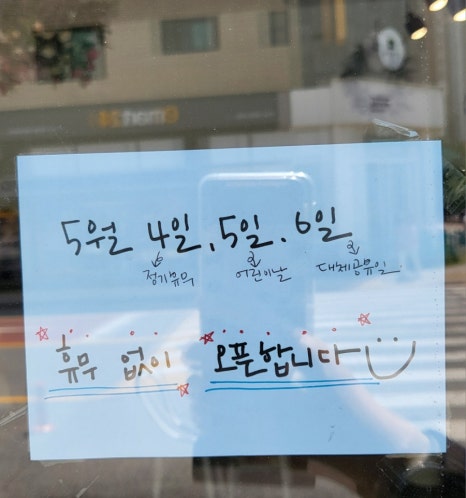 5월 4일, 5일. 6일
정기휴무 어린이날 대체공휴일
휴무 없이 오픈합니다